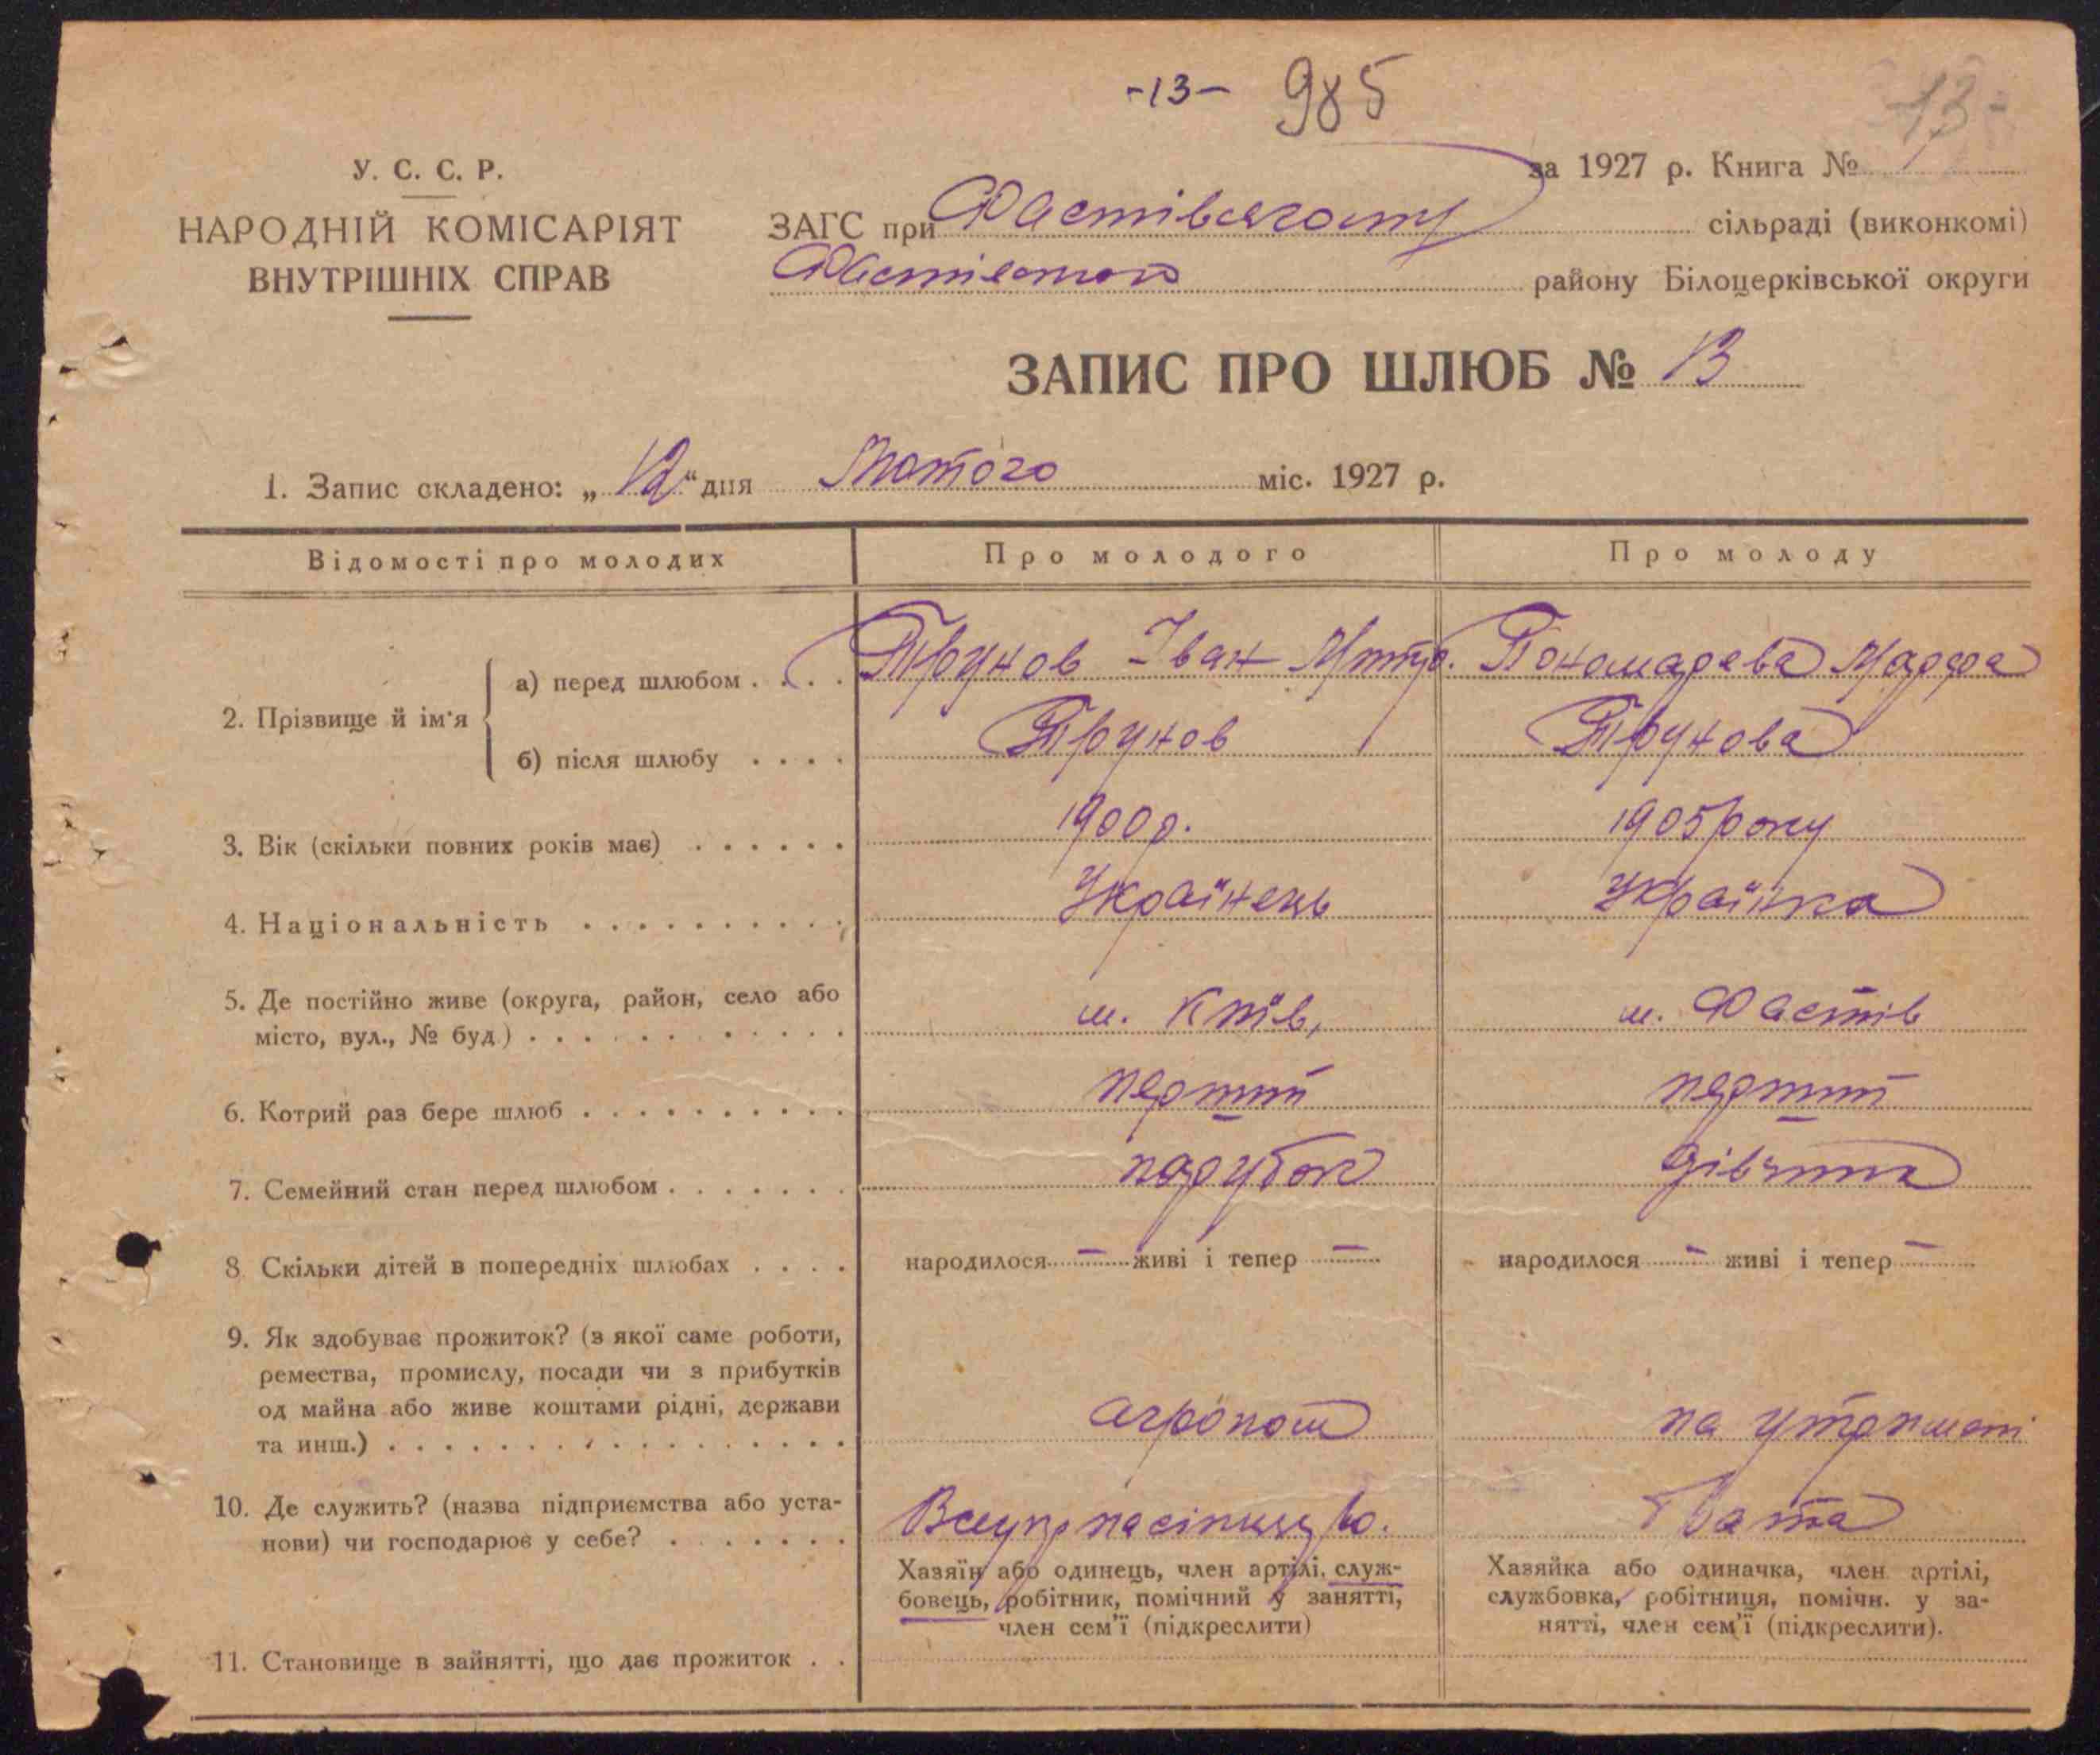 -13- 985 13-
У. С. С. Р.
НАРОДНІЙ КОМІСАРІЯТ
ВНУТРІШНІХ СПРАВ
за 1927 р. Книга № 1
ЗАГС при Фастівському сільраді (виконкомі)
Фастівського району Білоцерківської округи
ЗАПИС ПРО ШЛЮБ № 13
1. Запис складено: „12“ дня Лютого міс. 1927 р.
Відомості про молодих Про молодого Про молоду
2. Прізвище й ім'я
а) перед шлюбом . . . . Трунов Іван Пономарева Марфа
б) після шлюбу . . . . Трунов Трунова
3. Вік (скільки повних років має) . . . . . . 1900 р. 1905 року
4. Національність . . . . . . . . . . Українець Українка
5. Де постійно живе (округа, район, село або
місто, вул., № буд.) . . . . . . . . . . . м. Київ, м. Фастів
6. Котрий раз бере шлюб . . . . . . . . . . перший перший
7. Семейний стан перед шлюбом . . . . . . . парубок дівчина
8 Скільки дітей в попередніх шлюбах . . . . народилося — живі і тепер — народилося — живі і тепер —
9. Як здобуває прожиток? (з якої саме роботи,
ремества, промислу, посади чи з прибутків
од майна або живе коштами рідні, держави
та инш.) . . . . . . . . . . . . . . . . . агроном на утриманні
10. Де служить? (назва підприємства або уста-
нови) чи господарює у себе? . . . . . . . Тата
Хазяїн або одинець, член артілі, служ-
бовець, робітник, помічний у занятті,
член сем'ї (підкреслити)
Хазяйка або одиначка, член артілі,
службовка, робітниця, помічн. у за-
нятті, член сем'ї (підкреслити).
11. Становище в зайнятті, що дає прожиток . .